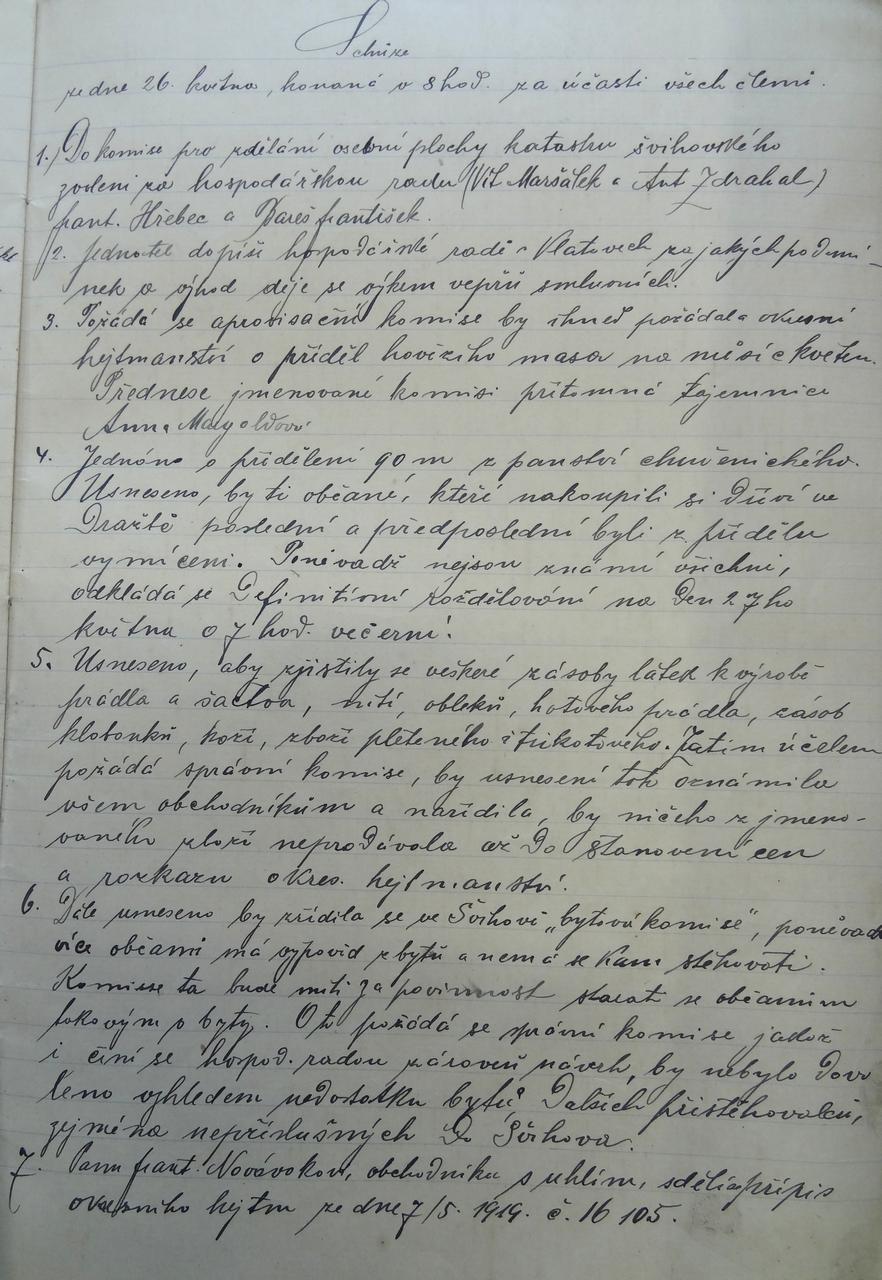 Schůze
ze dne 26. května, konaná v 8 hod. za účasti všech členů.
1.) Do komise pro zdělání osební plochy katastru švihovského
zvoleni za hospodářskou radu (Vít Maršálek a Ant Zdrahal)
frant. Hřebec a Bareš františek.
2. Jednatel dopíše hospodářské radě v Klatovech za jakých podmí-
nek a výhod děje se výkrm vepřů smluvních.
3. Požádá se aprovisační komise by ihned požádala okresní
hejtmanství o příděl hovězího masa na měsíc květen.
Přednese jmenované komisi přítomná tajemnice
Anna
4. Jednáno o přidělení 90 m z panství chuděnického.
Usneseno, by ti občané, kteří nakoupili si dříví ve
Dražbě poslední a předposlední byli z přídělu
vymíceni. Poněvadž nejsou známí všichni,
odkládá se Definitivní rozdělování na Den 27ho
května o 7 hod. večerní.
5. Usneseno, aby zjistily se veškeré zásoby látek k výrobě
prádla a šactva, nití, obleků, hotového prádla, zásob
klobouků, koží, zboží pleteného i trikotového. Za tím účelem
požádá správní komise, by usnesení toh oznámila
všem obchodníkům a nařídila, by ničeho z jmeno-
vaného zboží neprodávala až Do stanovení cen
a rozkazu okres. hejtmanství.
6. Dále usneseno by zřídila se ve Švihově „bytová komise", poněvadž
více občanů má výpověd z bytů a nemá se kam stěhovati.
Komisse ta bude míti za povinnost starat se občanům
takovým o byty. O to požádá se správní komise, jakož
i činí se hospod. radou zároveň návrh, by nebylo Dovo
leno vzhledem nedostatku bytů Dalších přistěhovalců,
zejména nepříslušných Do Švihova.
7. Panu frant. Novákovi, obchodníku s uhlím, sdělí přípis
okresního hejtm ze dne 7/5. 1919. č. 16 105.